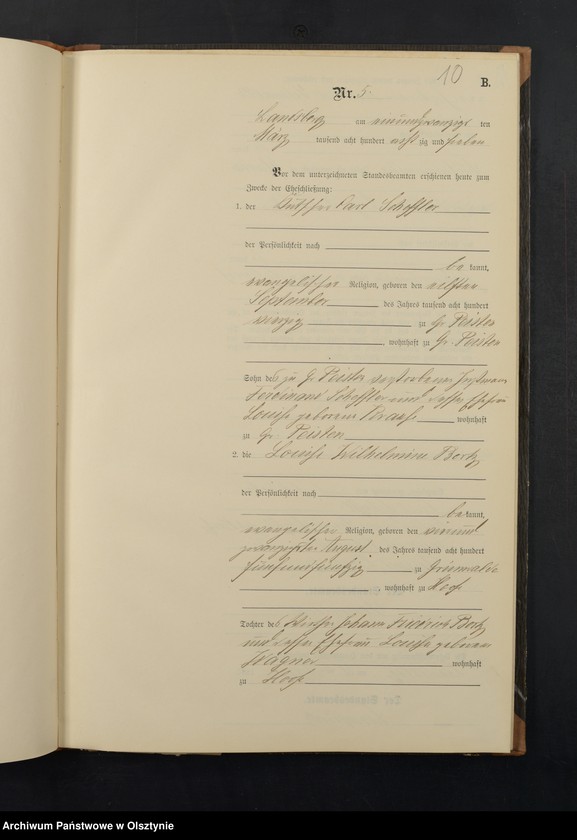 10
B.
Nr. 5.
Landsberg am neunundzwanzigsten
März tausend acht hundert achtzig und sieben
Vor dem unterzeichneten Standesbeamten erschienen heute zum
Zwecke der Eheschließung:
1. der Carl Scheffler
der Persönlichkeit nach
bekannt,
evangelischer Religion, geboren den elften
September des Jahres tausend acht hundert
vierzig zu Gr. Peisten
wohnhaft zu Gr. Peisten
Sohn des zu Gr. Peisten verstorbenen Instmann
Ferdinand Scheffler und dessen Ehefrau
Louise geborenen wohnhaft
zu Gr. Peisten
2. die Louise Wilhelmine
der Persönlichkeit nach
bekannt,
evangelischer Religion, geboren den vierund
zwanzigsten August des Jahres tausend acht hundert
fünfundfünfzig zu Grünwalde
, wohnhaft zu Hoofe
Tochter des Johann Friedrich
und dessen Ehefrau Louise geborenen
Wagner wohnhaft
zu Hoofe
Archiwum Państwowe w Olsztynie